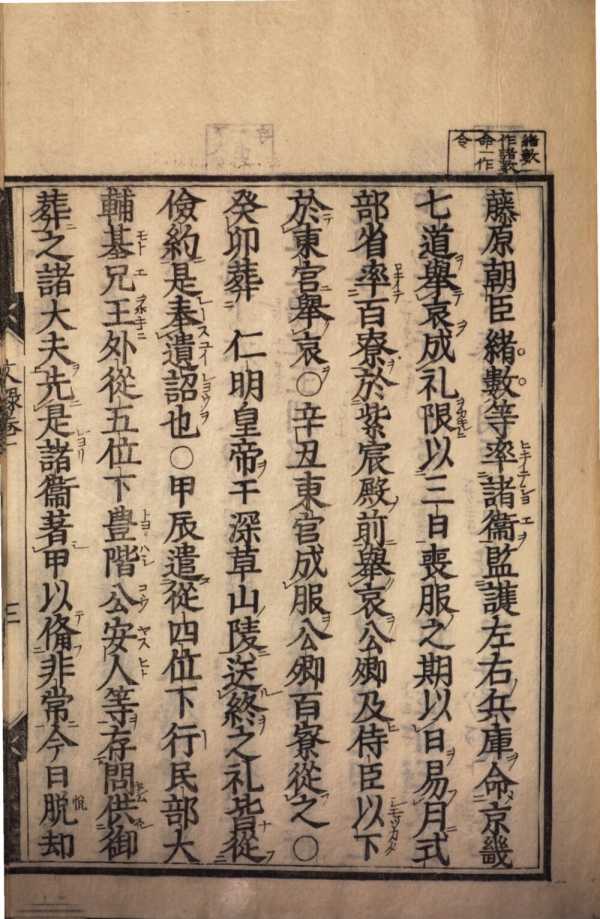 緒數一
作諸數
命一作
令
藤原朝臣緒數等率諸衞監護左右兵庫命京畿
七道擧哀成礼限以三日喪服之期以日易月式
部省率百寮於紫宸殿前擧哀公卿及侍臣以下
於東宮擧哀○辛丑東宮成服公卿百寮從之○
癸卯葬 仁明皇帝于深草山陵送終之礼皆從
儉約是奉遺詔也○甲辰遣從四位下行民部大
輔基兄王外從五位下豊階公安人等存問供御
葬之諸大夫先是諸衞著甲以俻非常今日脱却
文録卷一
三